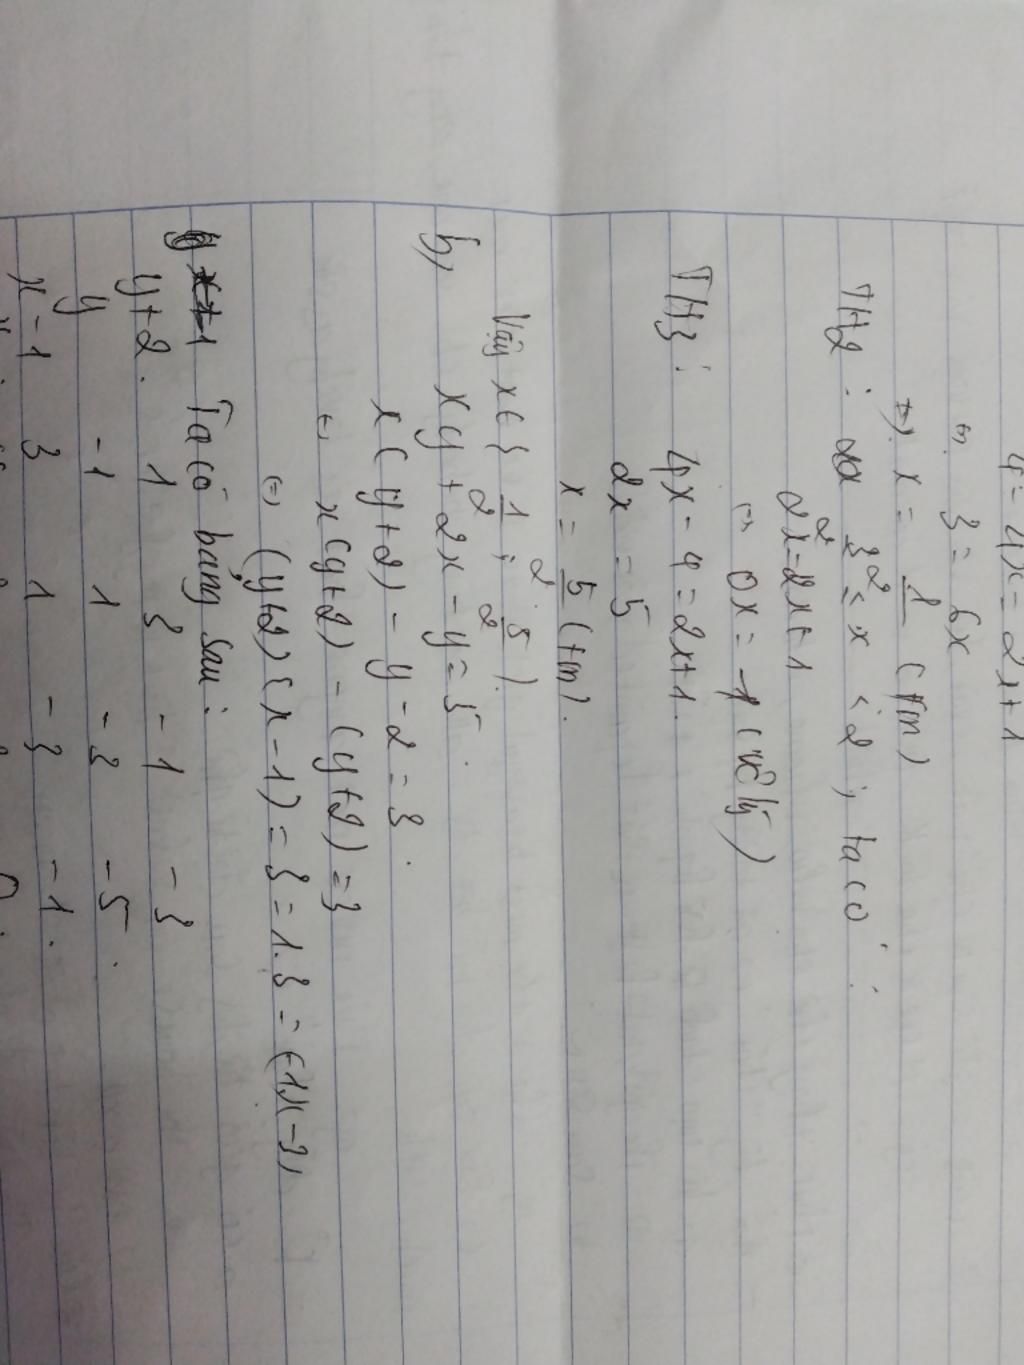 4 = 4x - 2x + 1
⇔ 3 = 6x
⇔ x = 1/2 (tm)
TH2: 2 ≤ x < 2; ta có:
2 = 2x - 2x + 1
⇔ 0x = -1 (vô lý)
TH3: 4x - 4 = 2x + 1.
2x = 5
x = 5/2 (tm).
Vậy x ∈ { 1/2 ; 5/2 }.
b, xy + 2x - y = 5.
x(y+2) - y - 2 = 3.
⇔ x(y+2) - (y+2) = 3
⇔ (y+2)(x-1) = 3 = 1.3 = (-1)(-3)
Ta có bảng sau:
y+2. 1 3 -1 -3
y -1 1 -3 -5.
x-1 3 1 -3 -1.